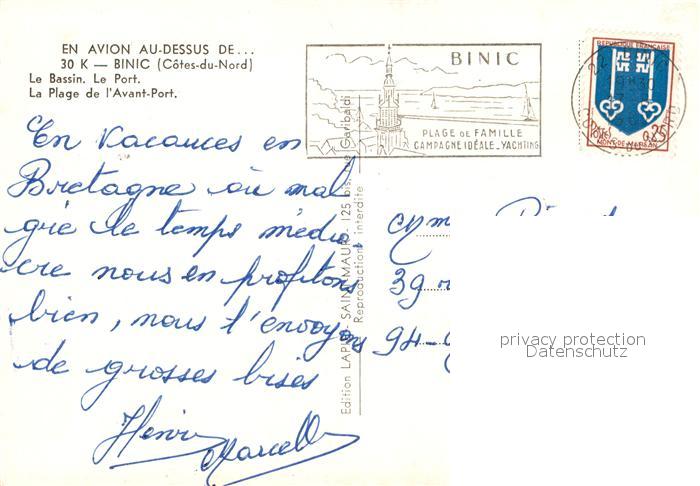 EN AVION AU-DESSUS DE...
30 K — BINIC (Côtes-du-Nord)
Le Bassin. Le Port.
La Plage de l'Avant-Port.
BINIC
PLAGE DE FAMILLE
CAMPAGNE IDÉALE_YACHTING
REPUBLIQUE FRANÇAISE
POSTES
0,25
MONT-DE-MARSAN
En vacances en
Bretagne où mal
gré le temps médio
cre nous en profitons
bien, nous t'envoyons
de grosses bises
Henri
Marcelle
Edition LAPIE - SAINT-MAUR - 125 bis, rue Garibaldi
Reproduction interdite
39
94-
privacy protection
Datenschutz